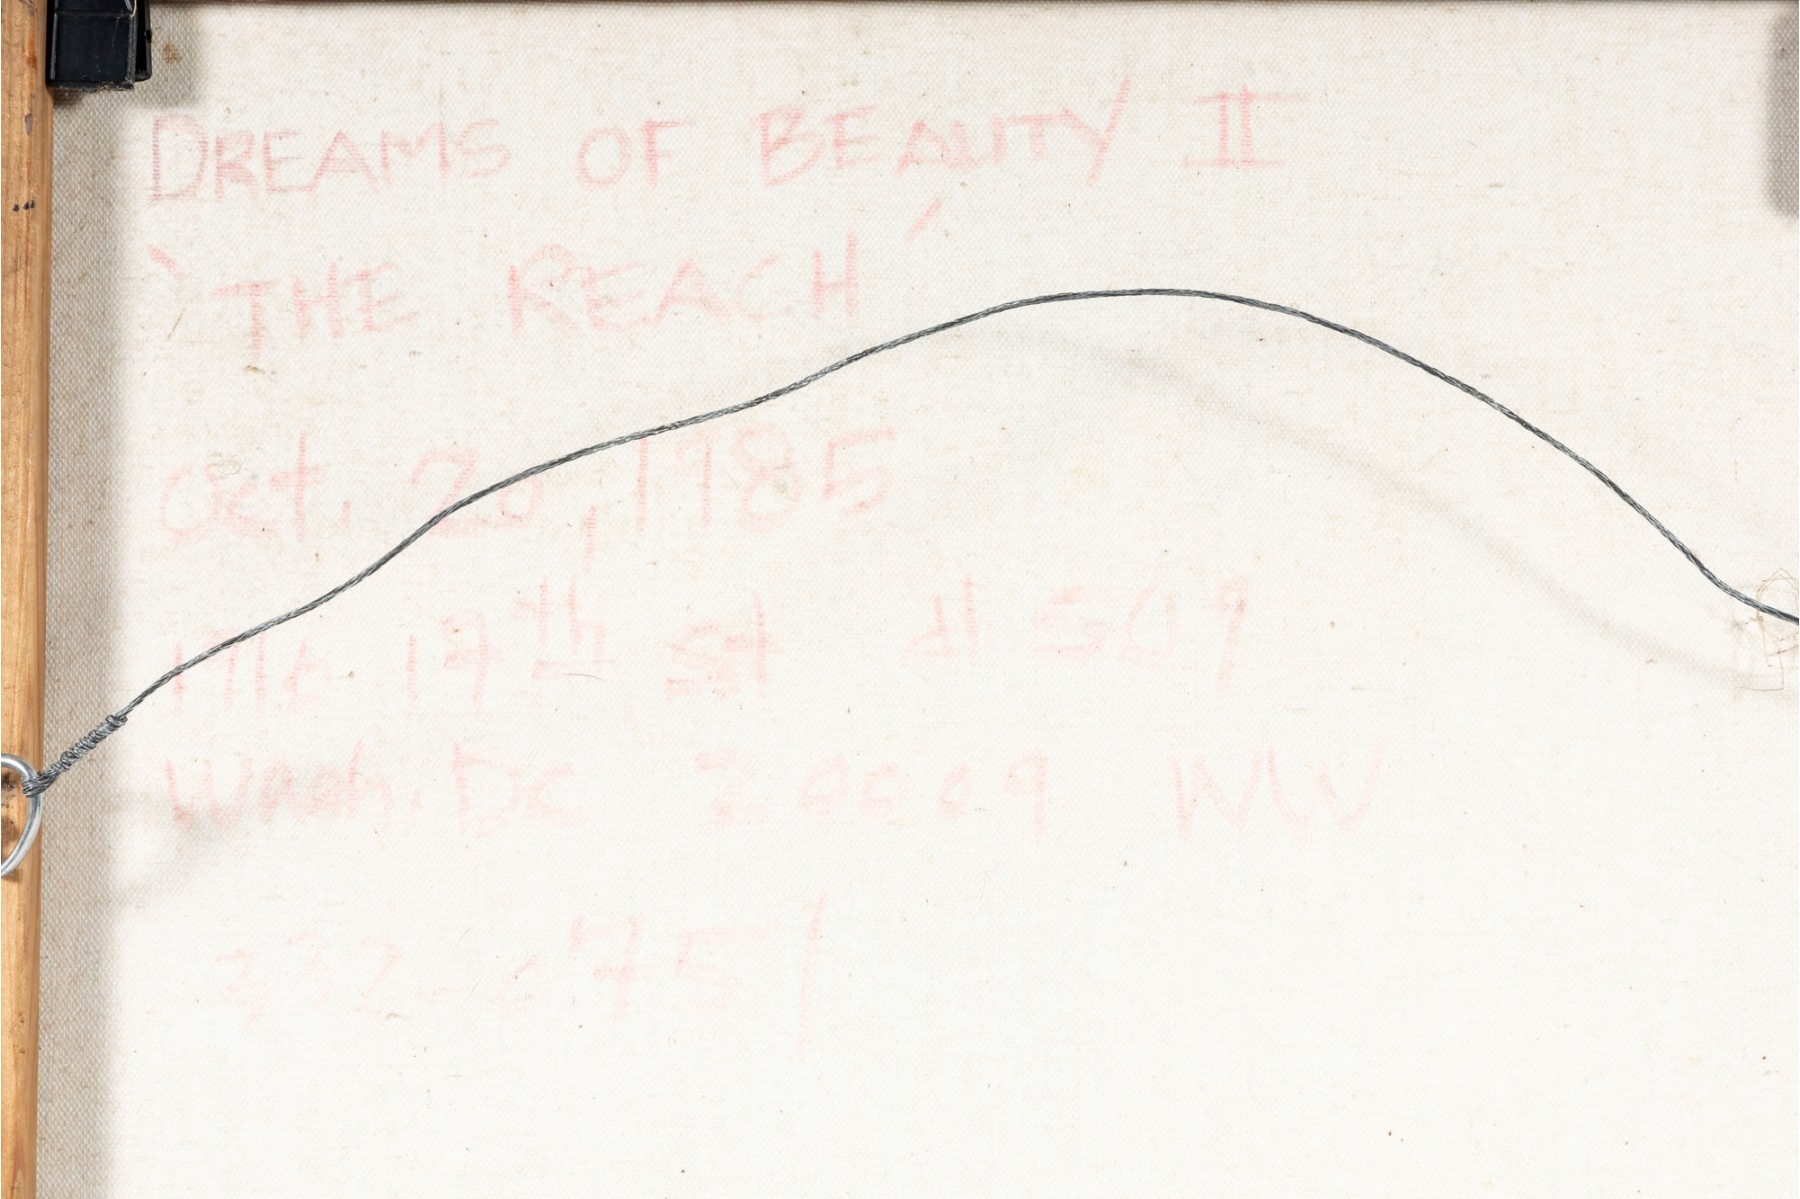 DREAMS OF BEAUTY II
'THE REACH'
Oct. 20, 1985
17th St # 509
Wash. DC 20009 NW
332-0751